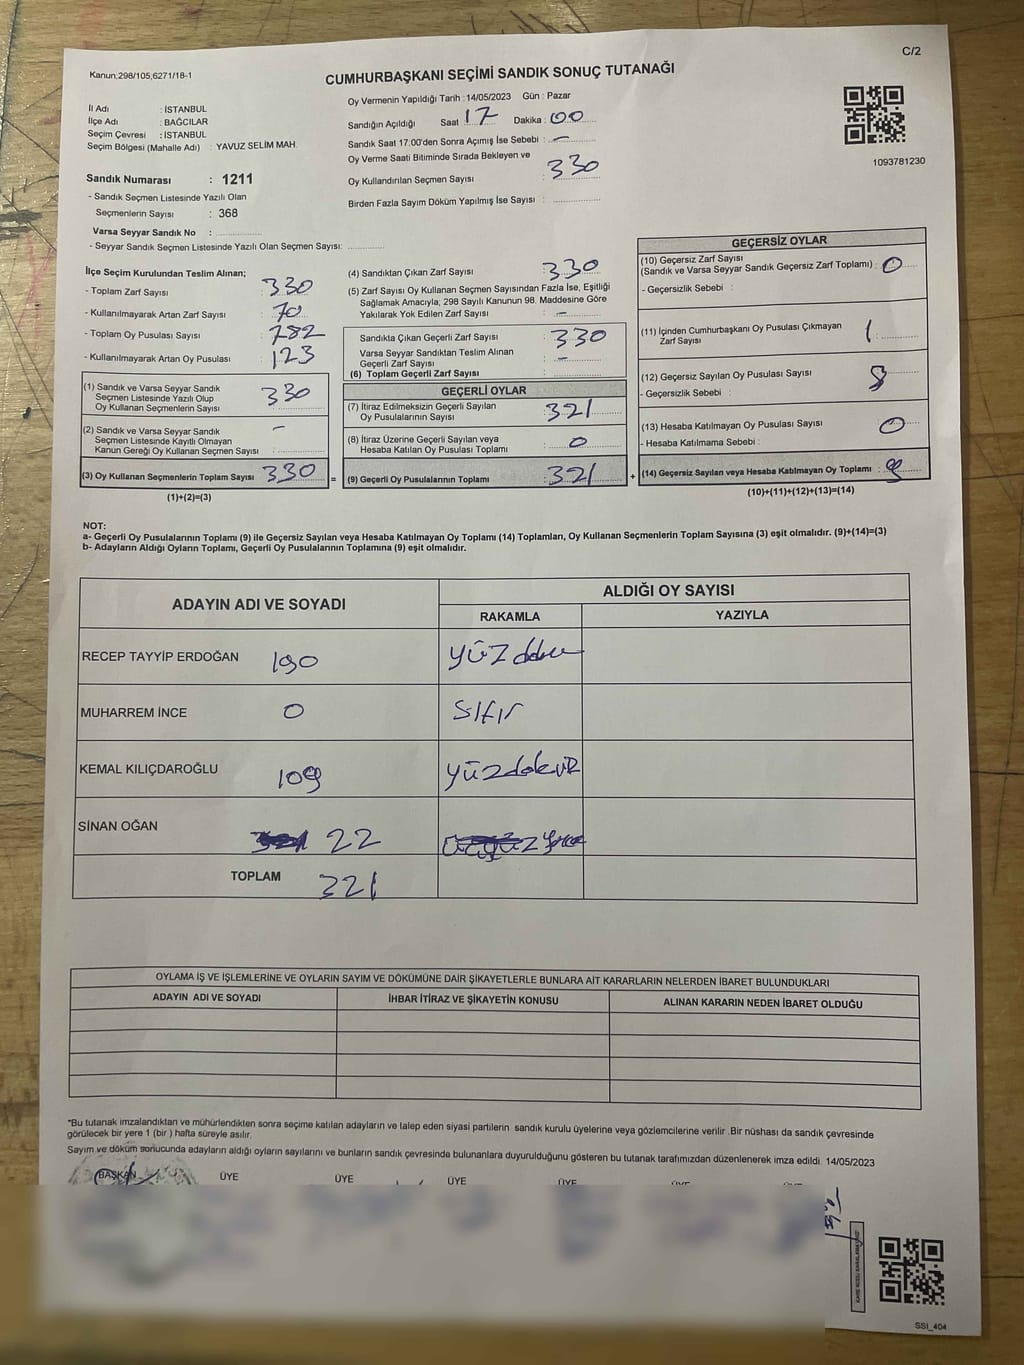 C/2
Kanun:298/105,6271/18-1
CUMHURBAŞKANI SEÇİMİ SANDIK SONUÇ TUTANAĞI
İl Adı : İSTANBUL
İlçe Adı : BAĞCILAR
Seçim Çevresi : İSTANBUL
Seçim Bölgesi (Mahalle Adı) : YAVUZ SELİM MAH.
Sandık Numarası : 1211
- Sandık Seçmen Listesinde Yazılı Olan
Seçmenlerin Sayısı : 368
Varsa Seyyar Sandık No :
- Seyyar Sandık Seçmen Listesinde Yazılı Olan Seçmen Sayısı:
Oy Vermenin Yapıldığı Tarih : 14/05/2023 Gün : Pazar
Sandığın Açıldığı Saat 17 Dakika : 00
Sandık Saat 17:00'den Sonra Açımış İse Sebebi : -
Oy Verme Saati Bitiminde Sırada Bekleyen ve
Oy Kullandırılan Seçmen Sayısı : 330
Birden Fazla Sayım Döküm Yapılmış İse Sayısı :
1093781230
İlçe Seçim Kurulundan Teslim Alınan;
- Toplam Zarf Sayısı : 330
- Kullanılmayarak Artan Zarf Sayısı : 70
- Toplam Oy Pusulası Sayısı : 782
- Kullanılmayarak Artan Oy Pusulası : 123
(1) Sandık ve Varsa Seyyar Sandık
Seçmen Listesinde Yazılı Olup
Oy Kullanan Seçmenlerin Sayısı : 330
(2) Sandık ve Varsa Seyyar Sandık
Seçmen Listesinde Kayıtlı Olmayan
Kanun Gereği Oy Kullanan Seçmen Sayısı : -
(3) Oy Kullanan Seçmenlerin Toplam Sayısı : 330 =
(1)+(2)=(3)
(4) Sandıktan Çıkan Zarf Sayısı : 330
(5) Zarf Sayısı Oy Kullanan Seçmen Sayısından Fazla İse, Eşitliği
Sağlamak Amacıyla; 298 Sayılı Kanunun 98. Maddesine Göre
Yakılarak Yok Edilen Zarf Sayısı : -
Sandıkta Çıkan Geçerli Zarf Sayısı : 330
Varsa Seyyar Sandıktan Teslim Alınan
Geçerli Zarf Sayısı : -
(6) Toplam Geçerli Zarf Sayısı
GEÇERLİ OYLAR
(7) İtiraz Edilmeksizin Geçerli Sayılan
Oy Pusulalarının Sayısı : 321
(8) İtiraz Üzerine Geçerli Sayılan veya
Hesaba Katılan Oy Pusulası Toplamı : 0
(9) Geçerli Oy Pusulalarının Toplamı : 321 +
GEÇERSİZ OYLAR
(10) Geçersiz Zarf Sayısı
(Sandık ve Varsa Seyyar Sandık Geçersiz Zarf Toplamı) : 0
- Geçersizlik Sebebi :
(11) İçinden Cumhurbaşkanı Oy Pusulası Çıkmayan
Zarf Sayısı : 1
(12) Geçersiz Sayılan Oy Pusulası Sayısı : 8
- Geçersizlik Sebebi :
(13) Hesaba Katılmayan Oy Pusulası Sayısı : 0
- Hesaba Katılmama Sebebi :
(14) Geçersiz Sayılan veya Hesaba Katılmayan Oy Toplamı :
(10)+(11)+(12)+(13)=(14)
NOT:
a- Geçerli Oy Pusulalarının Toplamı (9) ile Geçersiz Sayılan veya Hesaba Katılmayan Oy Toplamı (14) Toplamları, Oy Kullanan Seçmenlerin Toplam Sayısına (3) eşit olmalıdır. (9)+(14)=(3)
b- Adayların Aldığı Oyların Toplamı, Geçerli Oy Pusulalarının Toplamına (9) eşit olmalıdır.
ADAYIN ADI VE SOYADI ALDIĞI OY SAYISI
RAKAMLA YAZIYLA
RECEP TAYYİP ERDOĞAN 190 yüz
MUHARREM İNCE 0 Sıfır
KEMAL KILIÇDAROĞLU 109 yüzdokuz
SİNAN OĞAN 22
TOPLAM 321
OYLAMA İŞ VE İŞLEMLERİNE VE OYLARIN SAYIM VE DÖKÜMÜNE DAİR ŞİKAYETLERLE BUNLARA AİT KARARLARIN NELERDEN İBARET BULUNDUKLARI
ADAYIN ADI VE SOYADI İHBAR İTİRAZ VE ŞİKAYETİN KONUSU ALINAN KARARIN NEDEN İBARET OLDUĞU
*Bu tutanak imzalandıktan ve mühürlendikten sonra seçime katılan adayların ve talep eden siyasi partilerin sandık kurulu üyelerine veya gözlemcilerine verilir .Bir nüshası da sandık çevresinde
görülecek bir yere 1 (bir ) hafta süreyle asılır.
Sayım ve döküm sonucunda adayların aldığı oyların sayılarını ve bunların sandık çevresinde bulunanlara duyurulduğunu gösteren bu tutanak tarafımızdan düzenlenerek imza edildi. 14/05/2023
BAŞKAN ÜYE ÜYE ÜYE ÜYE ÜYE ÜYE
SSI_404